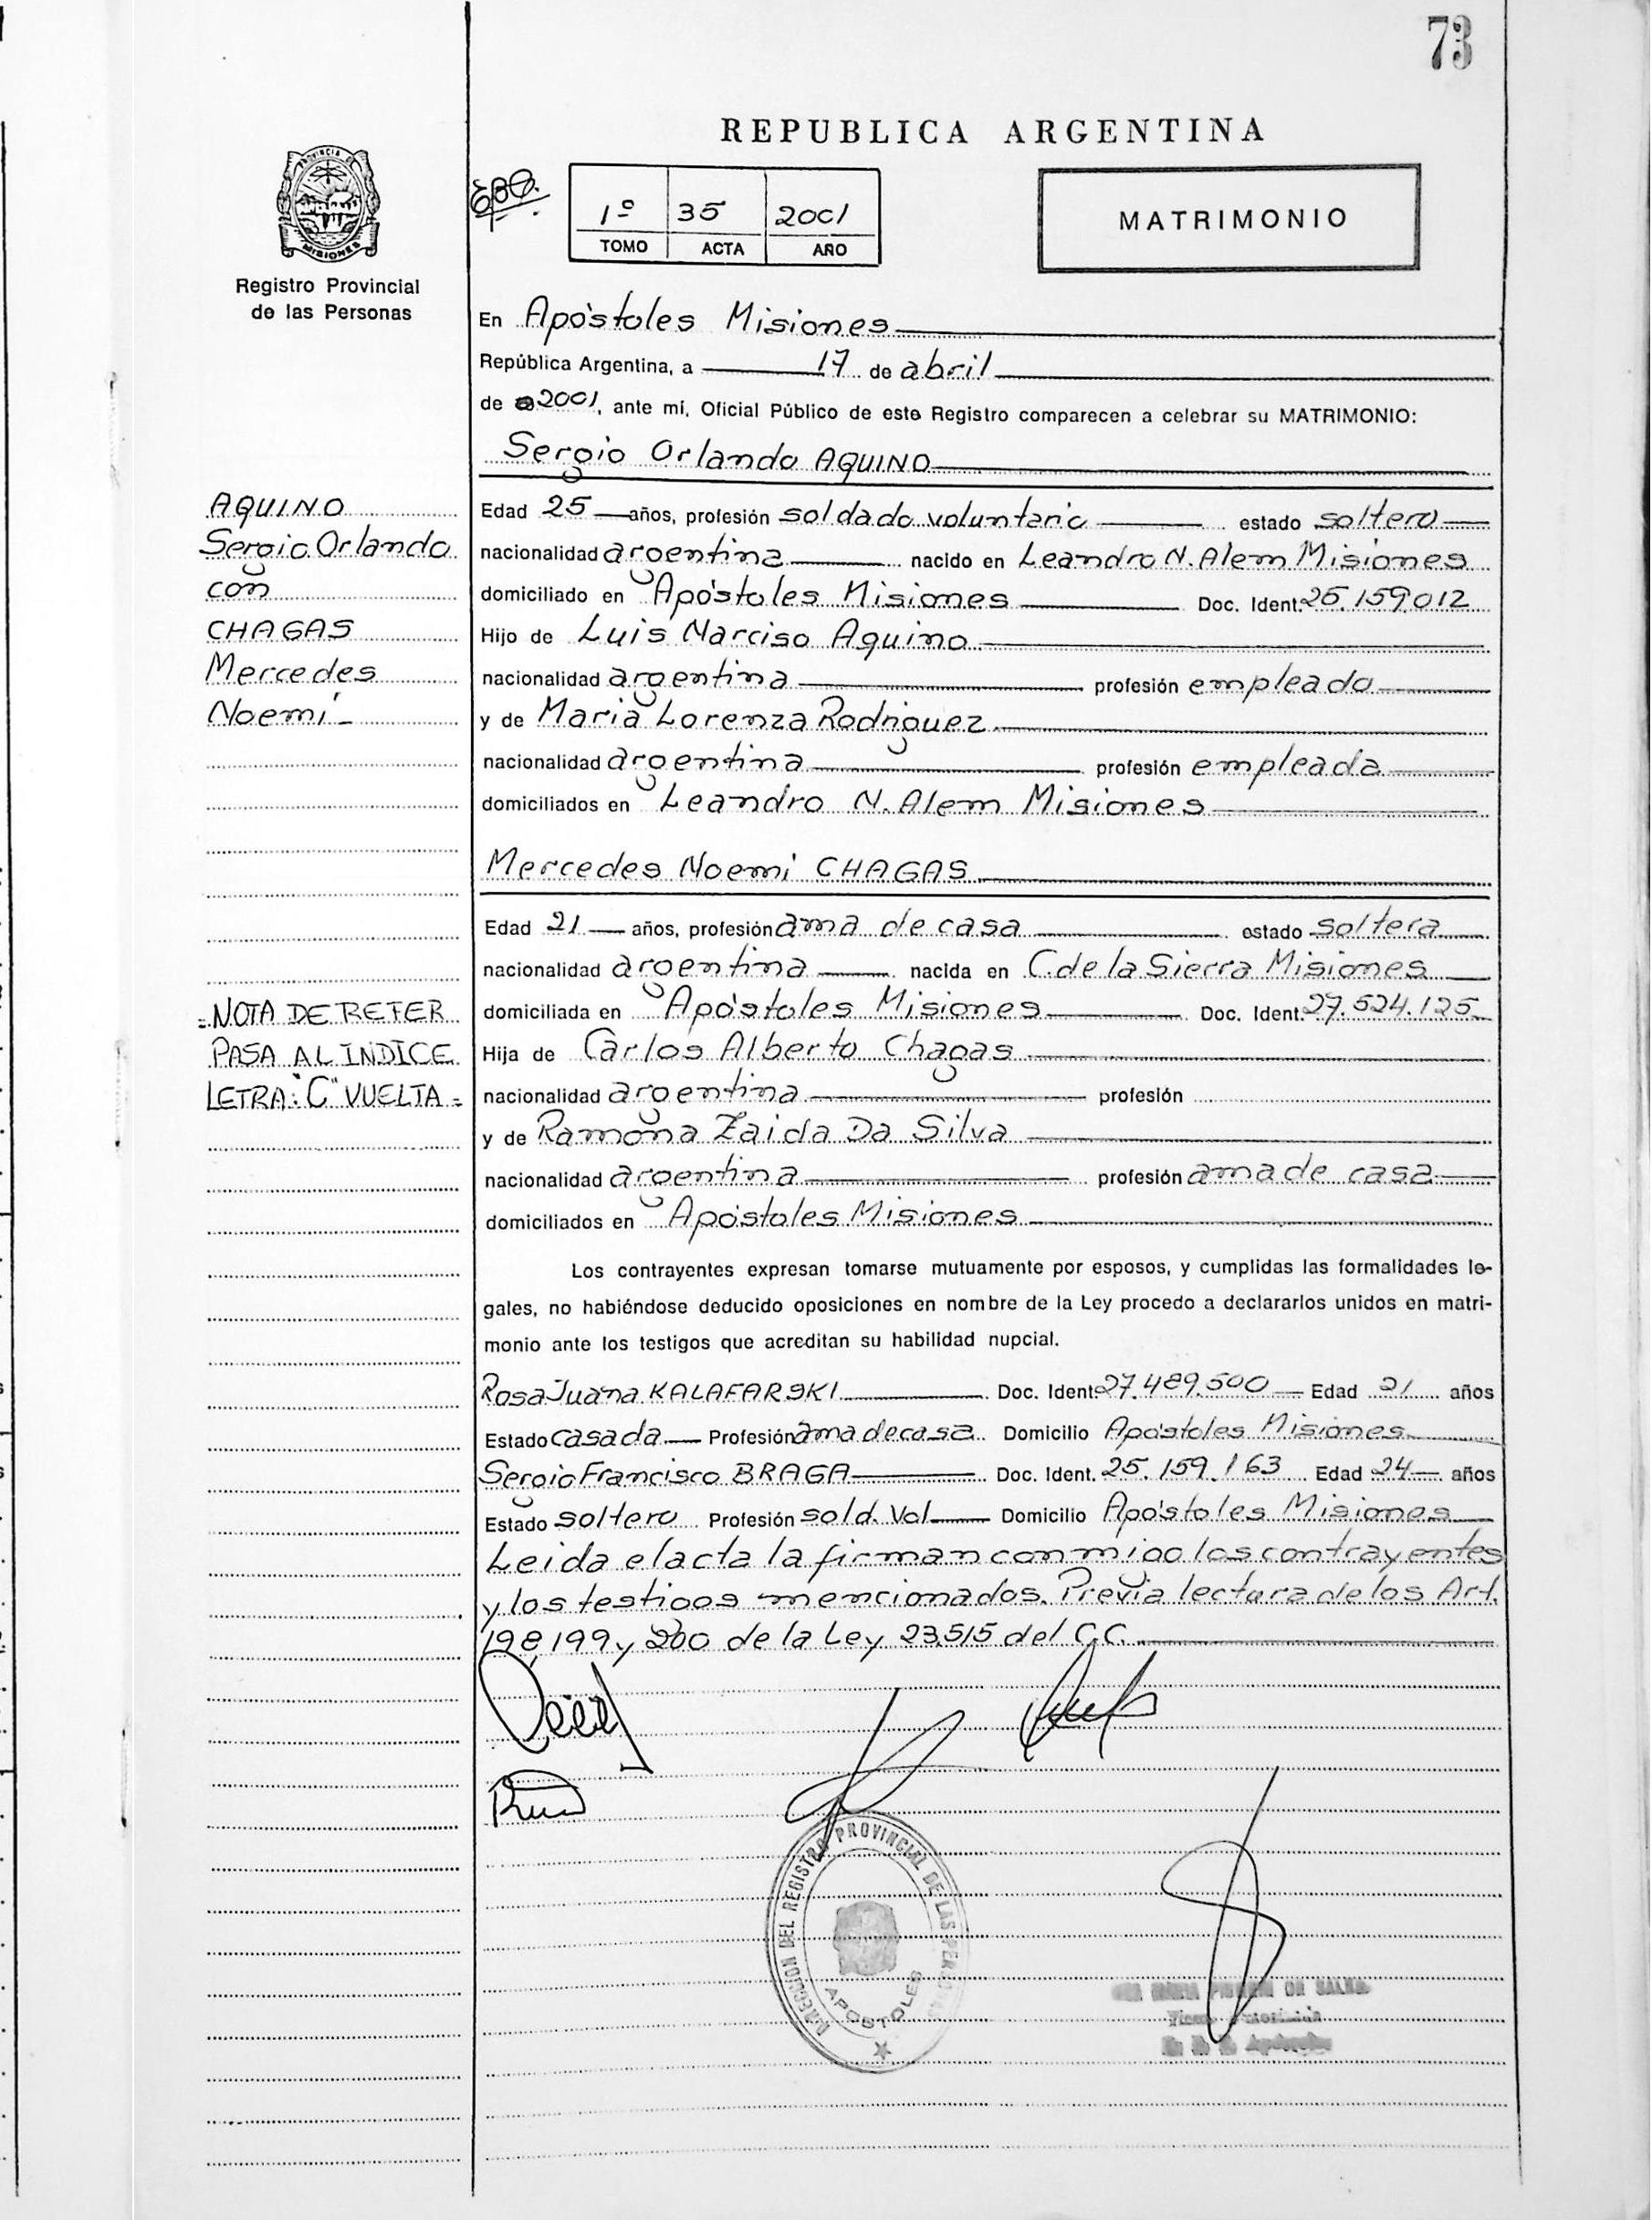 73
REPUBLICA ARGENTINA
PROVINCIA DE
MISIONES
Registro Provincial
de las Personas
1º 35 2001
TOMO ACTA AÑO
MATRIMONIO
En Apóstoles Misiones
República Argentina, a 17 de abril
de 2001, ante mí, Oficial Público de este Registro comparecen a celebrar su MATRIMONIO:
Sergio Orlando AQUINO
AQUINO
Sergio Orlando
con
CHAGAS
Mercedes
Noemí
Edad 25 años, profesión soldado voluntario estado soltero
nacionalidad argentina nacido en Leandro N. Alem Misiones
domiciliado en Apóstoles Misiones Doc. Ident. 25.159.012
Hijo de Luis Narciso Aquino
nacionalidad argentina profesión empleado
y de Maria Lorenza Rodriguez
nacionalidad argentina profesión empleada
domiciliados en Leandro N. Alem Misiones
Mercedes Noemi CHAGAS
Edad 21 años, profesión ama de casa estado soltera
nacionalidad argentina nacida en C. de la Sierra Misiones
domiciliada en Apóstoles Misiones Doc. Ident. 27.524.125
Hija de Carlos Alberto Chagas
nacionalidad argentina profesión
y de Ramona Zaida Da Silva
nacionalidad argentina profesión ama de casa
domiciliados en Apóstoles Misiones
= NOTA DE REFER
PASA AL INDICE
LETRA: "C" VUELTA =
Los contrayentes expresan tomarse mutuamente por esposos, y cumplidas las formalidades le-
gales, no habiéndose deducido oposiciones en nombre de la Ley procedo a declararlos unidos en matri-
monio ante los testigos que acreditan su habilidad nupcial.
Rosa Juana KALAFARSKI Doc. Ident. 27.489.500 Edad 21 años
Estado casada Profesión ama de casa Domicilio Apóstoles Misiones
Sergio Francisco BRAGA Doc. Ident. 25.159.163 Edad 24 años
Estado soltero Profesión sold. Vol Domicilio Apóstoles Misiones
Leida el acta la firman conmigo los contrayentes
y los testigos mencionados. Previa lectura de los Art.
198, 199 y 200 de la Ley 23.515 del C.C.
DIRECCION DEL REGISTRO PROVINCIAL DE LAS PERSONAS
APOSTOLES